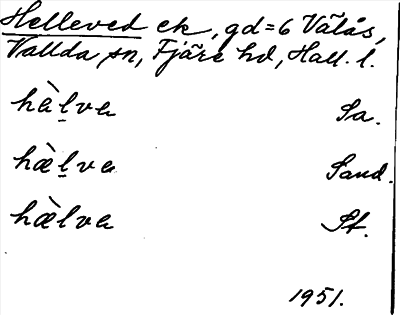 Helleved ek, gd=6 Vålås,
Vallda sn, Fjäre hd, Hall. l.
hàḻva Sa.
hæ̀ḻva Sand.
hæ̀lva St.
1951.